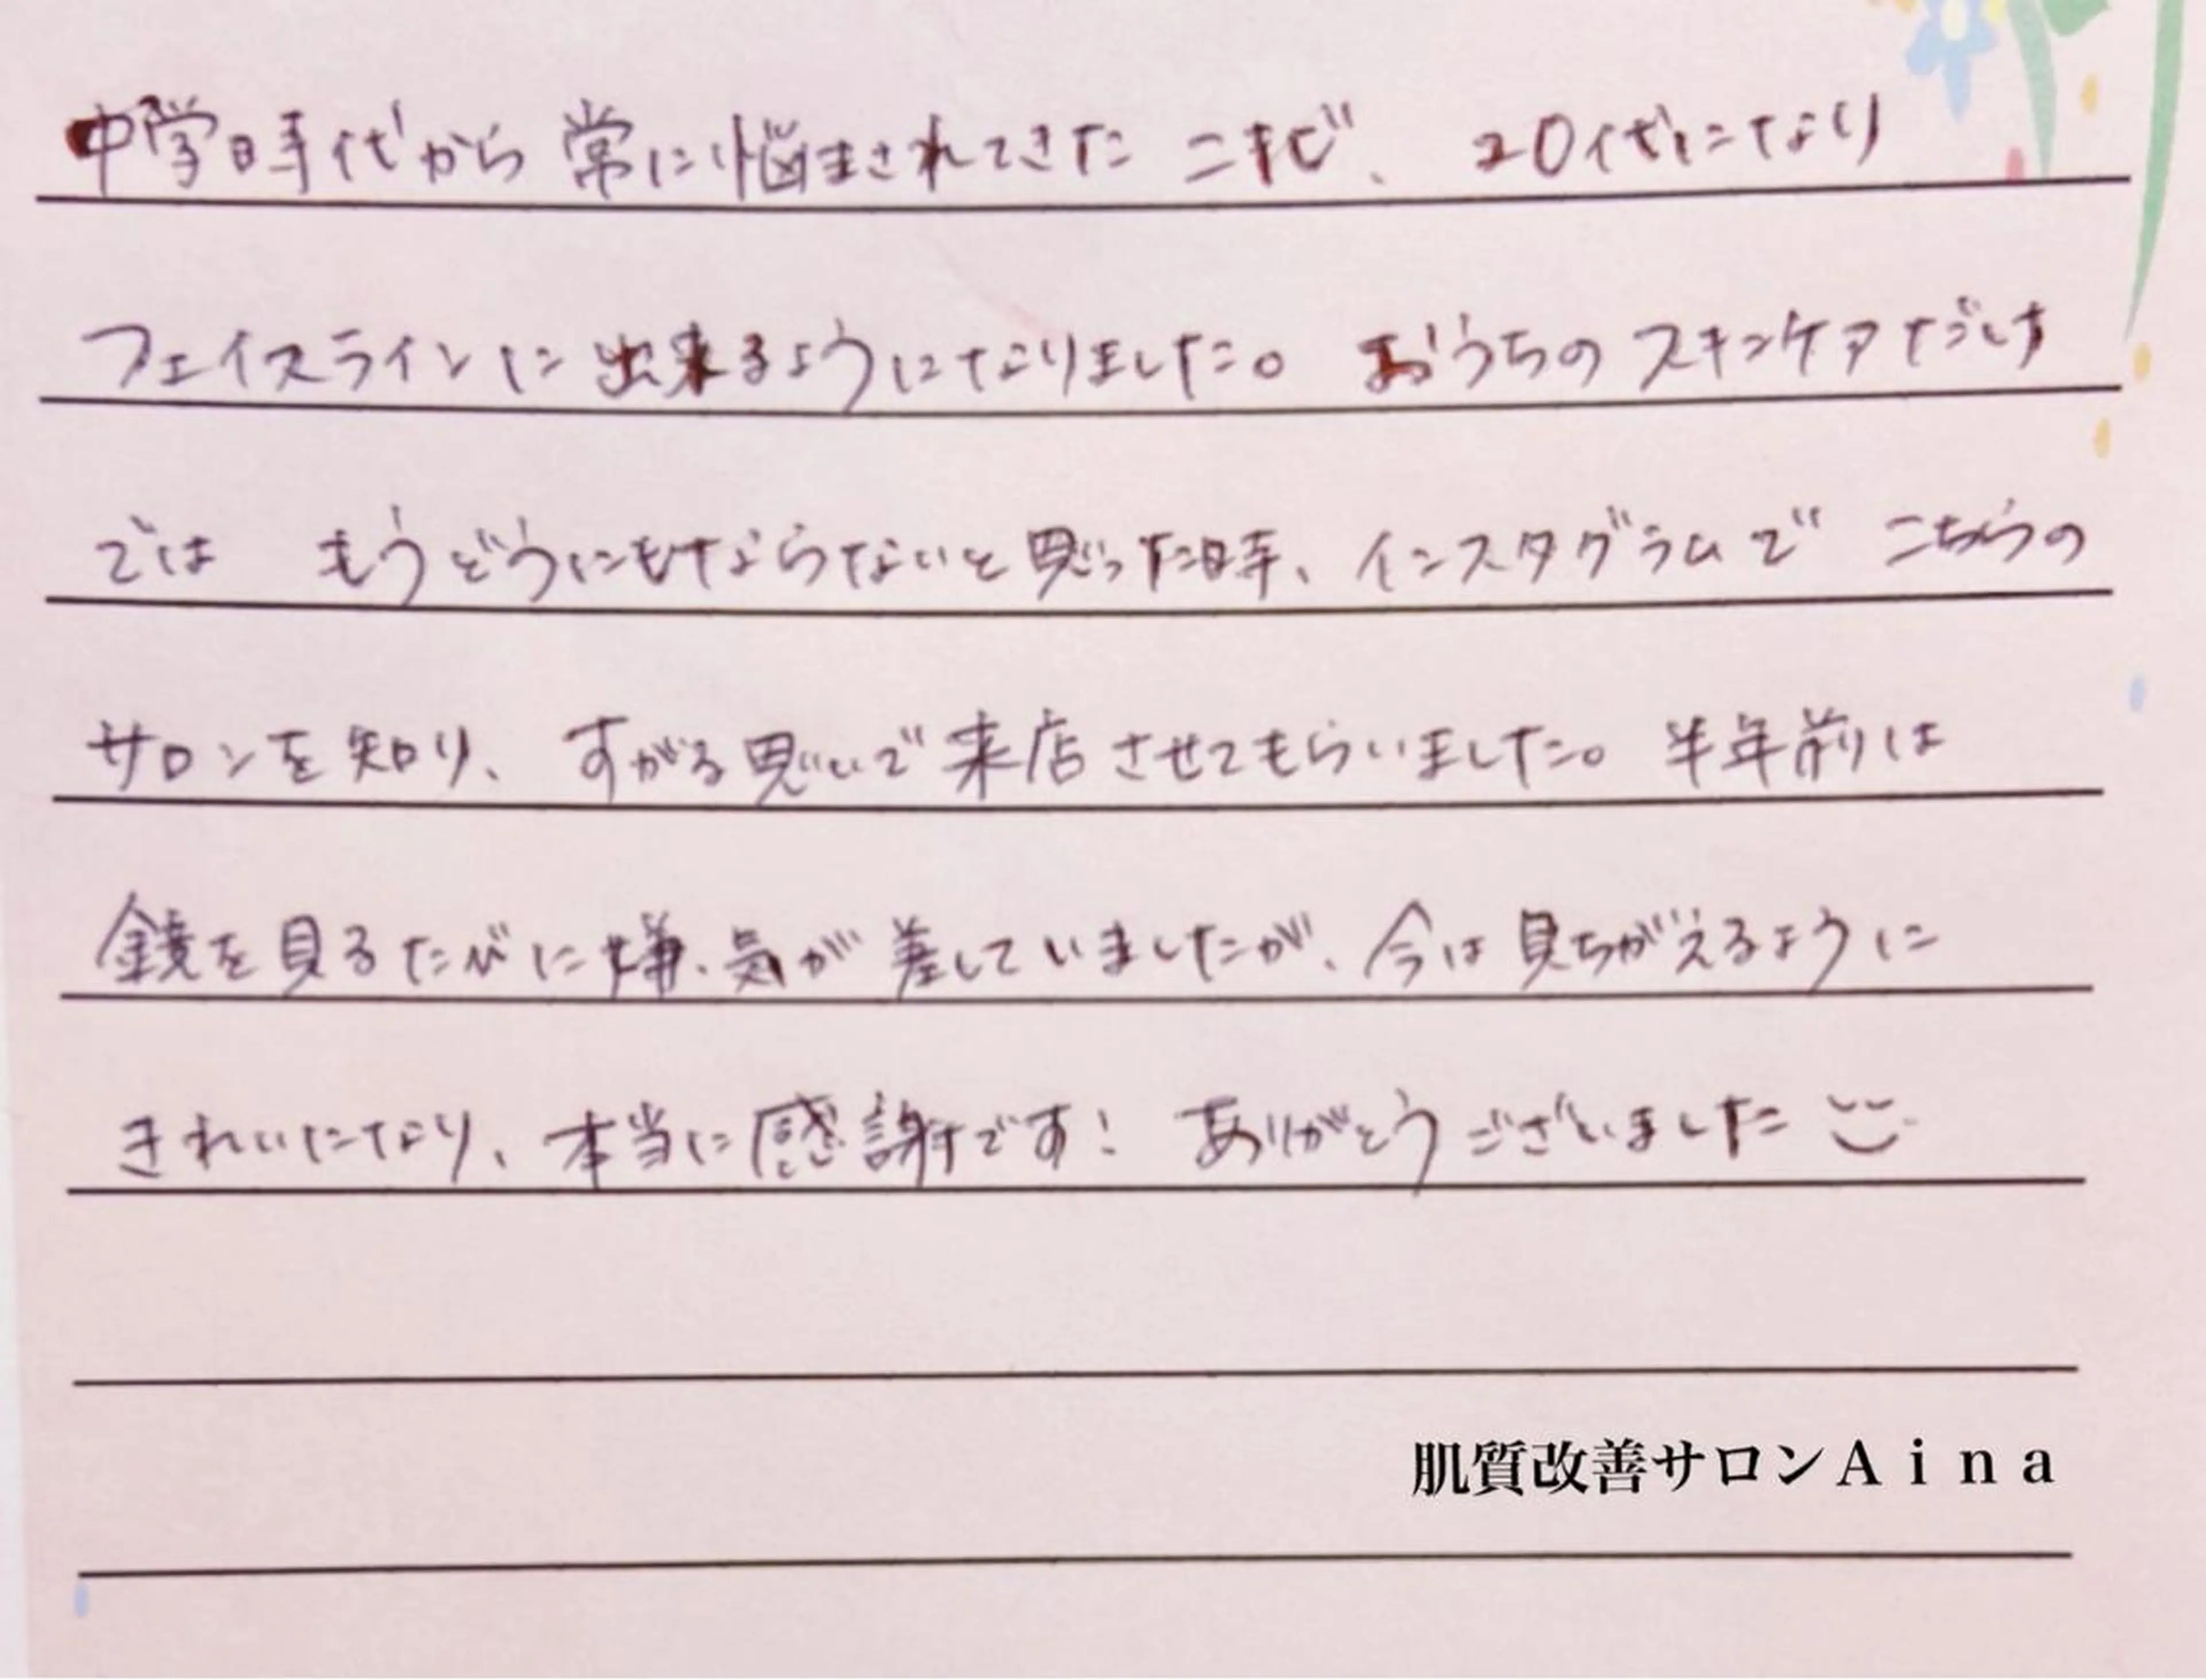 中学時代から常に悩まされてきたニキビ、20代になり
フェイスラインに出来るようになりました。おうちのスキンケアだけ
では もうどうにもならないと思った時、インスタグラムで こちらの
サロンを知り、すがる思いで来店させてもらいました。半年前は
鏡を見るたびに嫌気が差していましたが、今は見ちがえるように
きれいになり、本当に感謝です! ありがとうございました
肌質改善サロンAina